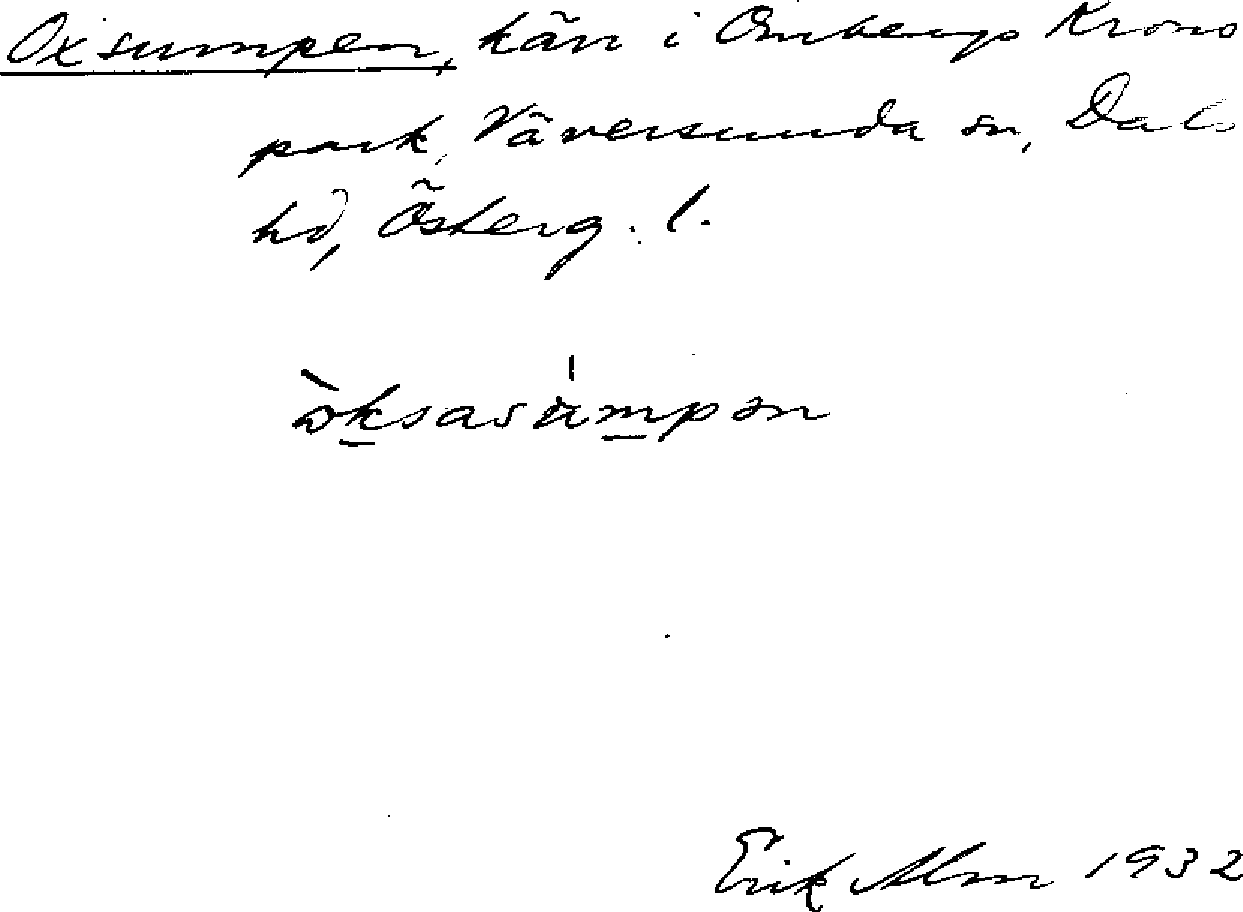 Oxsumpen, kärr i Ombergs Krono
park, Väversunda sn, Dals
hd, Österg. l.
òksasu̍mpən
Erik Alm 1932